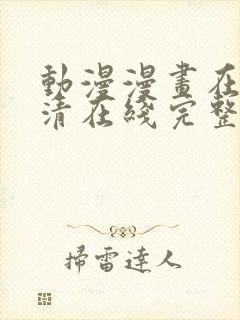 動漫漫畫在
清在綫完整
掃雷達人